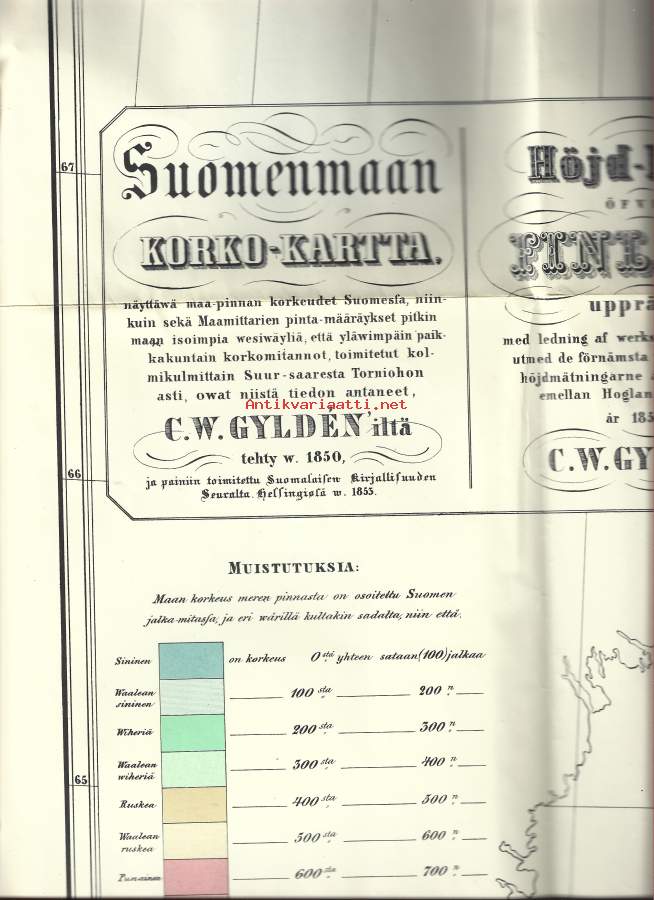 67
Suomenmaan
KORKO-KARTTA,
näyttäwä maa-pinnan korkeudet Suomesſa, niin-
kuin sekä Maamittarien pinta-määräykset pitkin
maan isoimpia wesiwäyliä, että yläwimpäin paik-
kakuntain korkomitannot, toimitetut kol-
mikulmittain Suur-saaresta Torniohon
asti, owat niistä tiedon antaneet,
Antikvariaatti.net
C.W. GYLDÉN'iltä
tehty w. 1850,
ja painiin toimitettu Suomalaisen Kirjallisuuden
Seuralta. Helsingisſä w. 1853.
Höjd-
ÖFV
FINL
upprä
med ledning af werks
utmed de förnämsta
höjdmätningarne
emellan Hoglan
år 185
C.W.GY
66
MUISTUTUKSIA:
Maan korkeus meren pinnasta on osoitettu Suomen
jalka-mitasſa, ja eri wärillä kultakin sadalta, niin että.
Sininen on korkeus 0sta yhteen sataan (100) jalkaa
Waalean sininen 100sta 200n
Wiheriä 200sta 300n
Waalean wiheriä 300sta 400n
65
Ruskea 400sta 500n
Waalean ruskea 500sta 600n
Punainen 600sta 700n